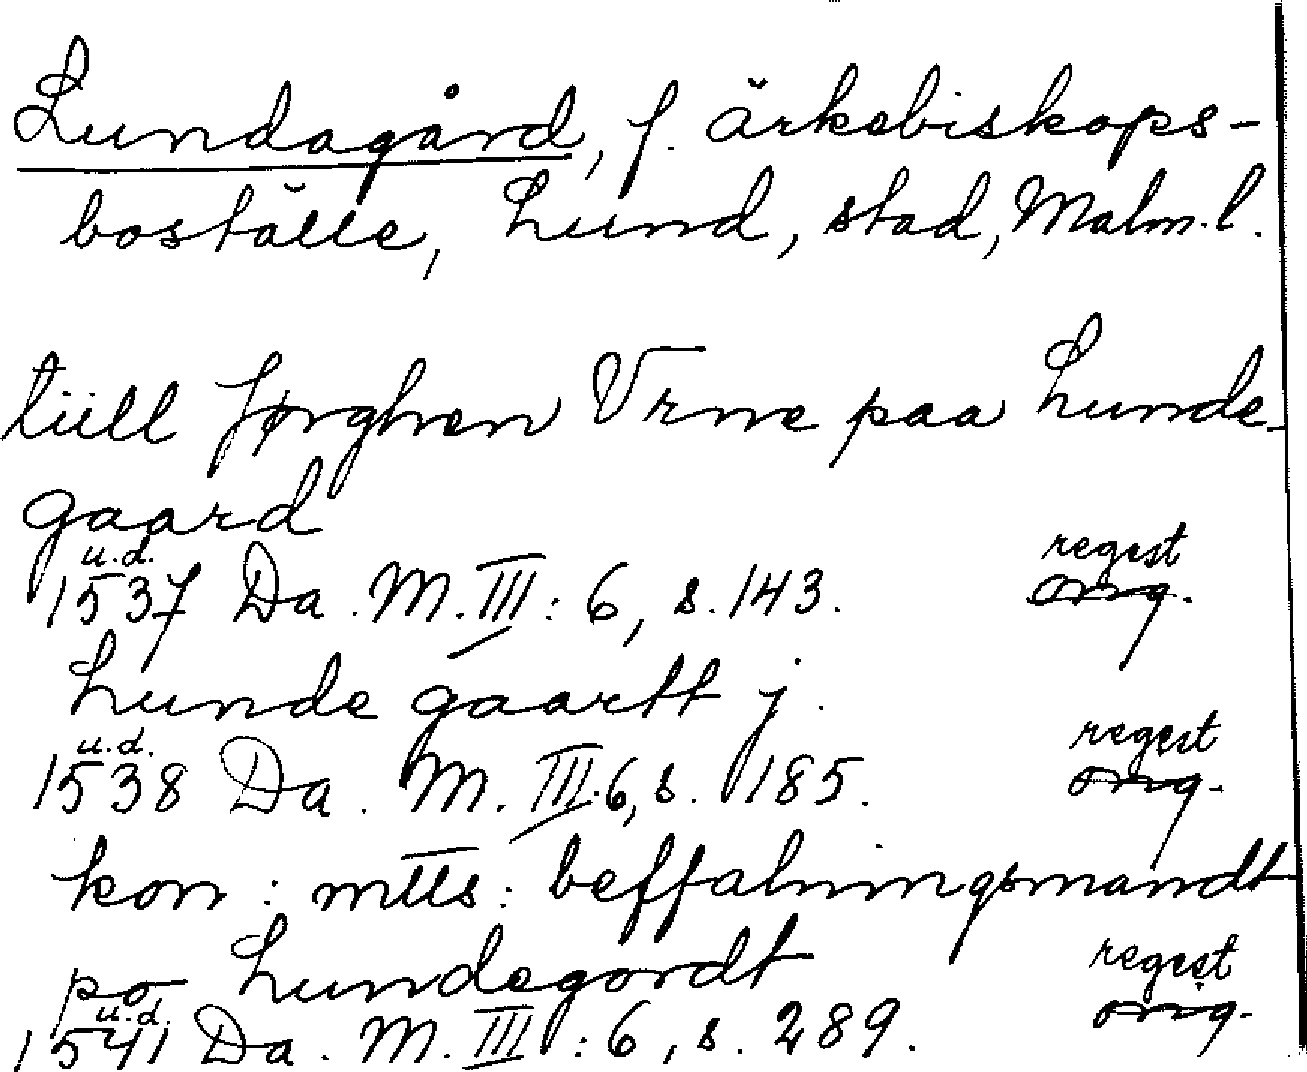 Lundagård, f. ärkebiskops-
boställe, Lund, stad, Malm. l.
tiill Jørghen Vrne paa Lunde-
gaard
u.d. regest
1537 Da. M. III: 6, s. 143. orig.
Lunde gaartt j.
u.d. regest
1538 Da. M. III: 6, s. 185. orig.
kon: mtts: beffalningsmandt
po Lundegordt
u.d. regest
1541 Da. M. III: 6, s. 289. orig.